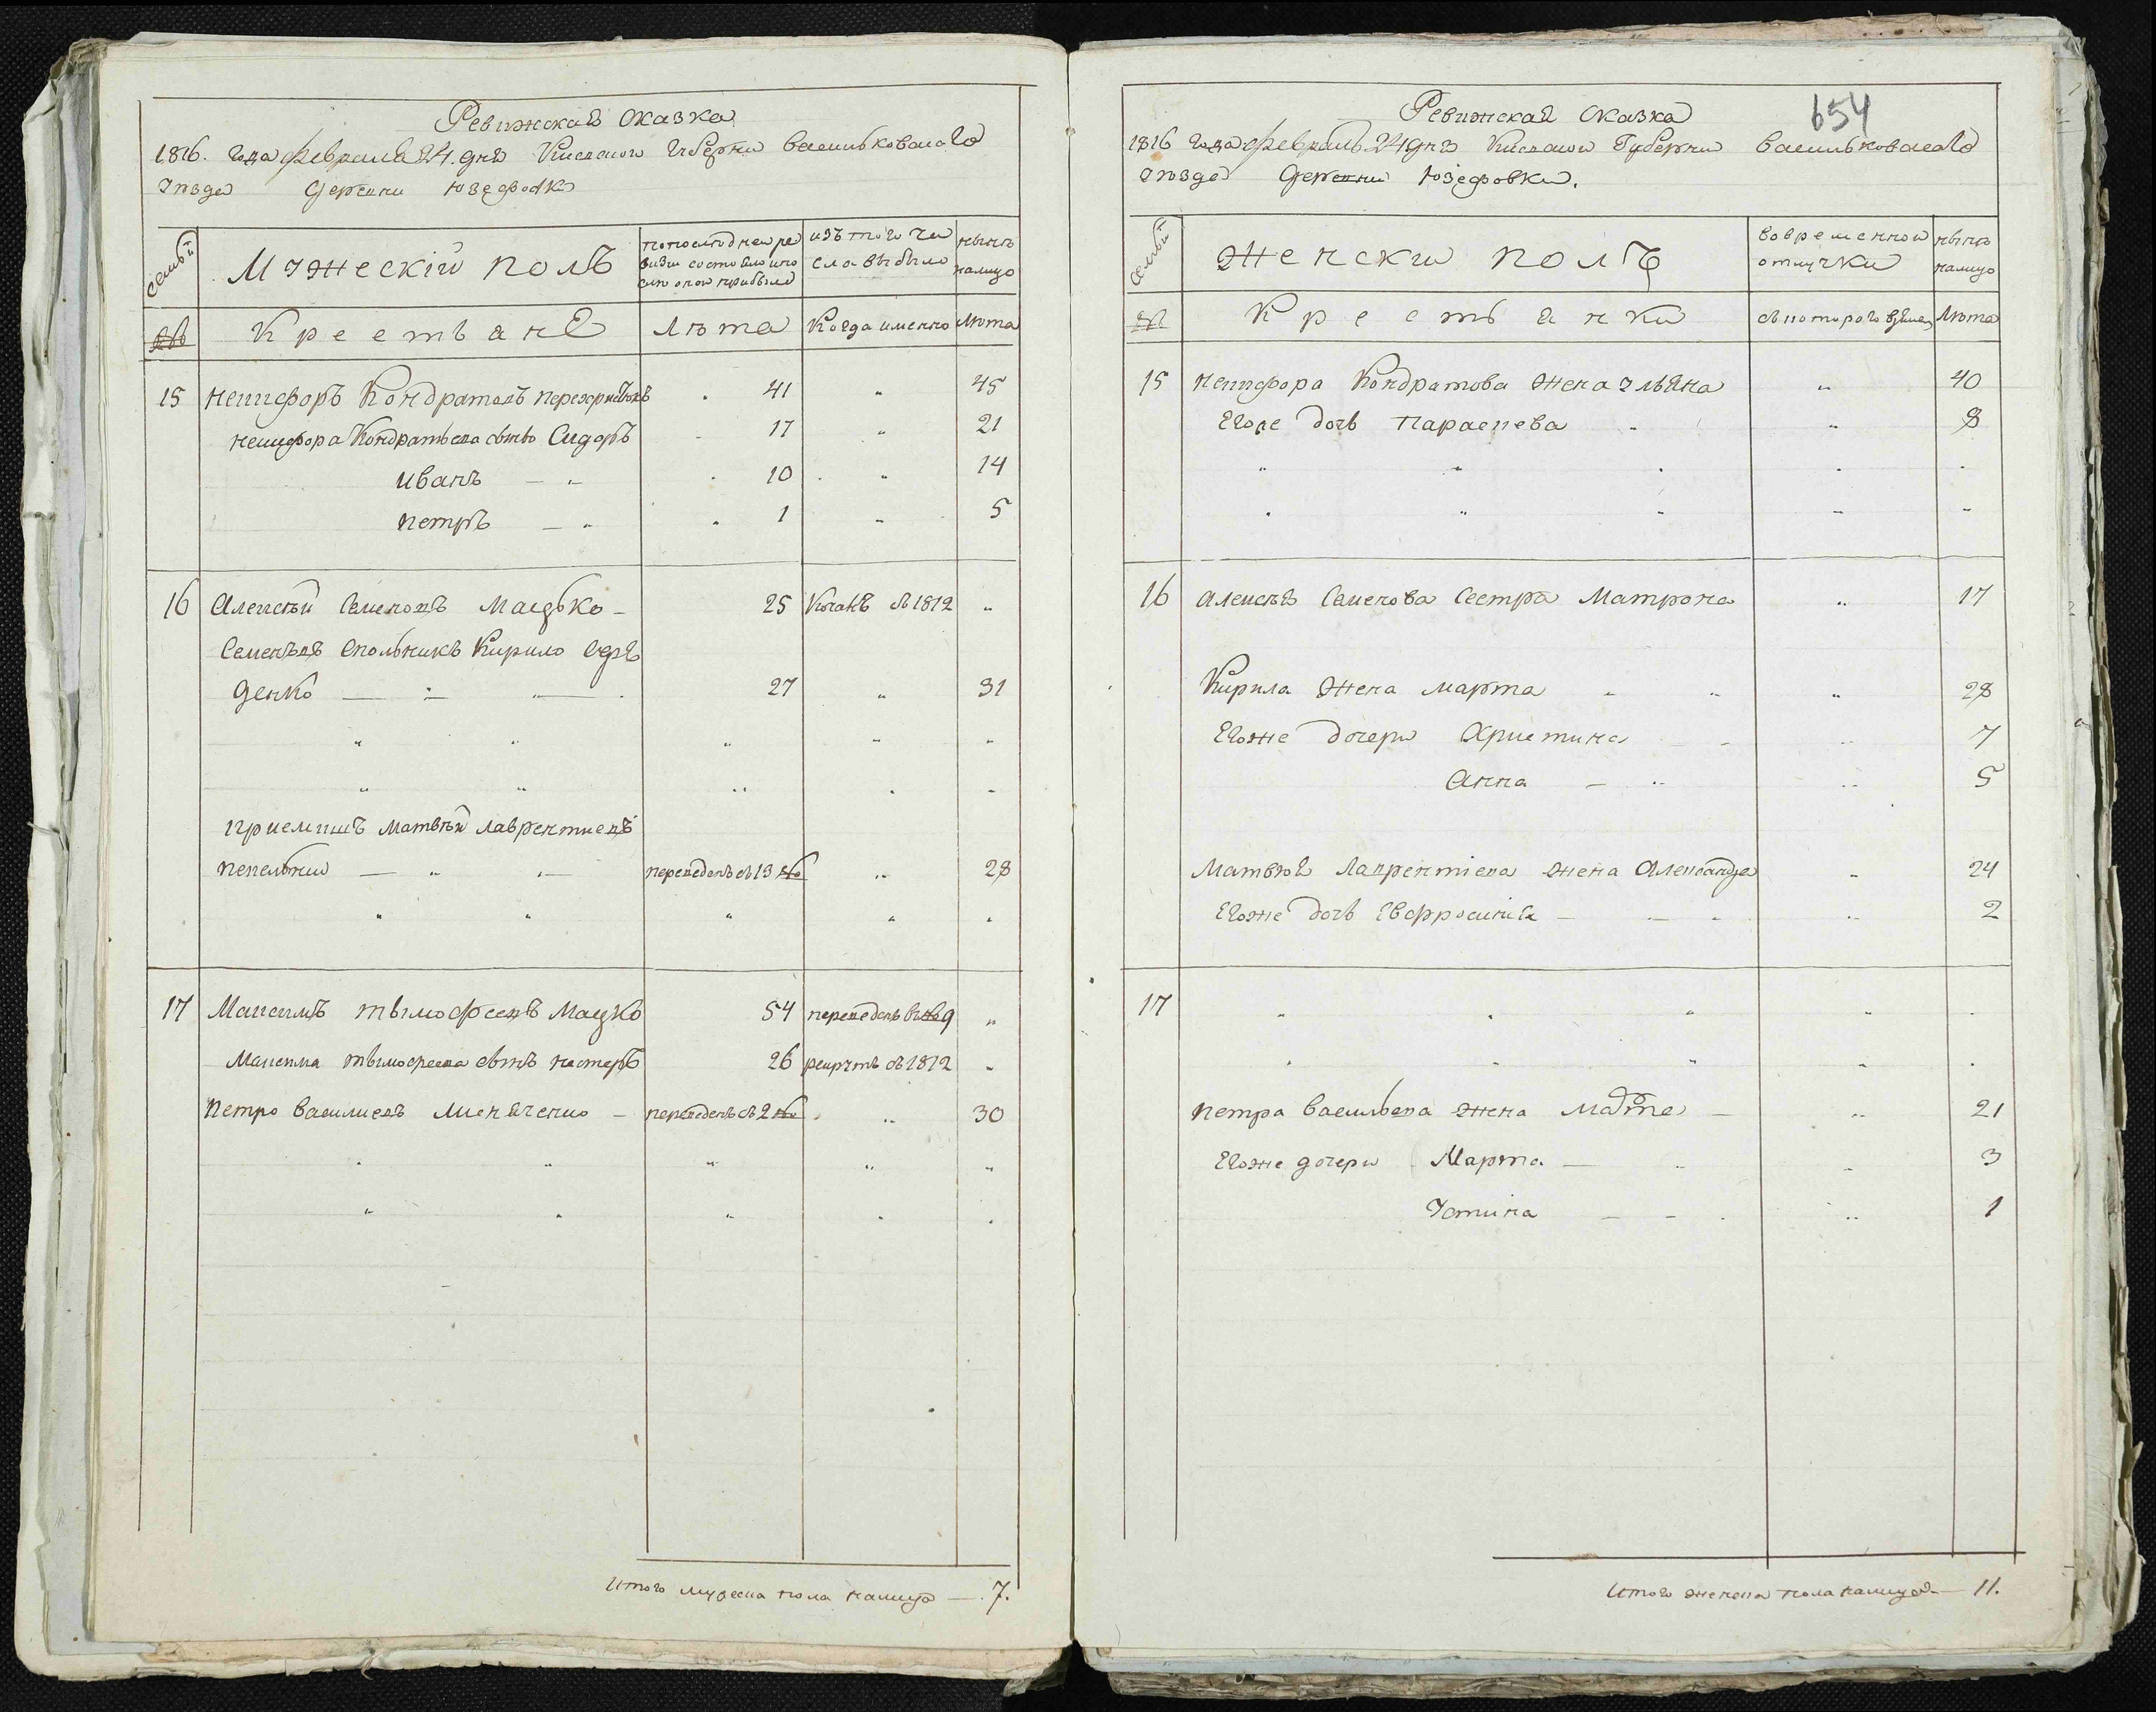 Ревижская сказка
1816. года февраля 24. дня Киевской Губернии васильковского
уезда деревни юзефовки
семьи
Мужескій полъ
по последней ре
визии состояло и по
сле оной прибыло
изъ того чи
сла выбыло
ныне
налицо
№№
Крестьяне
Лета
Когда именно
Лета
15 никифоръ Кондратовъ 41 " 45
никифора Кондратьева сынъ Сидоръ 17 " 21
иванъ — " 10 " 14
петръ — " 1 " 5
16 Алексей Семеновъ Мацько — 25 въ 1812 "
Семеновъ Спольникъ Кирило Сер
денко — " — 27 " 31
приемышъ матвей лаврентиевъ
пепельный — " — переведенъ съ 13 № " 28
17 Максимъ тымофеевъ Мацко 54 переведенъ въ № 9 "
Максима тымофеева сынъ нестеръ 26 рекрутъ въ 1812 "
петро василиевъ Миняченко — переведенъ съ 2 № " 30
Итого мужеска пола налицо — 7.
654
Ревижская сказка
1816 года февраля 24 дня Киевской Губернии васильковского
уезда деревни юзефовки.
семьи
Женски полъ
во временной
отлучки
ныне
налицо
№
Крестьянки
съ которого время
Лета
15 никифора Кондратова жена ульяна " 40
Егоже дочь параскева " " 8
16 алексея Семенова сестра матрона " 17
Кирила жена марта " " " 28
Егоже дочери Христина " 7
Анна — " " 5
матвея Лаврентіева жена Александра " 24
Егоже дочь Евфросинія — " 2
17
петра васильева жена — " 21
Егоже дочери Марта — " " 3
Устина — — " 1
Итого женска пола налицо — 11.